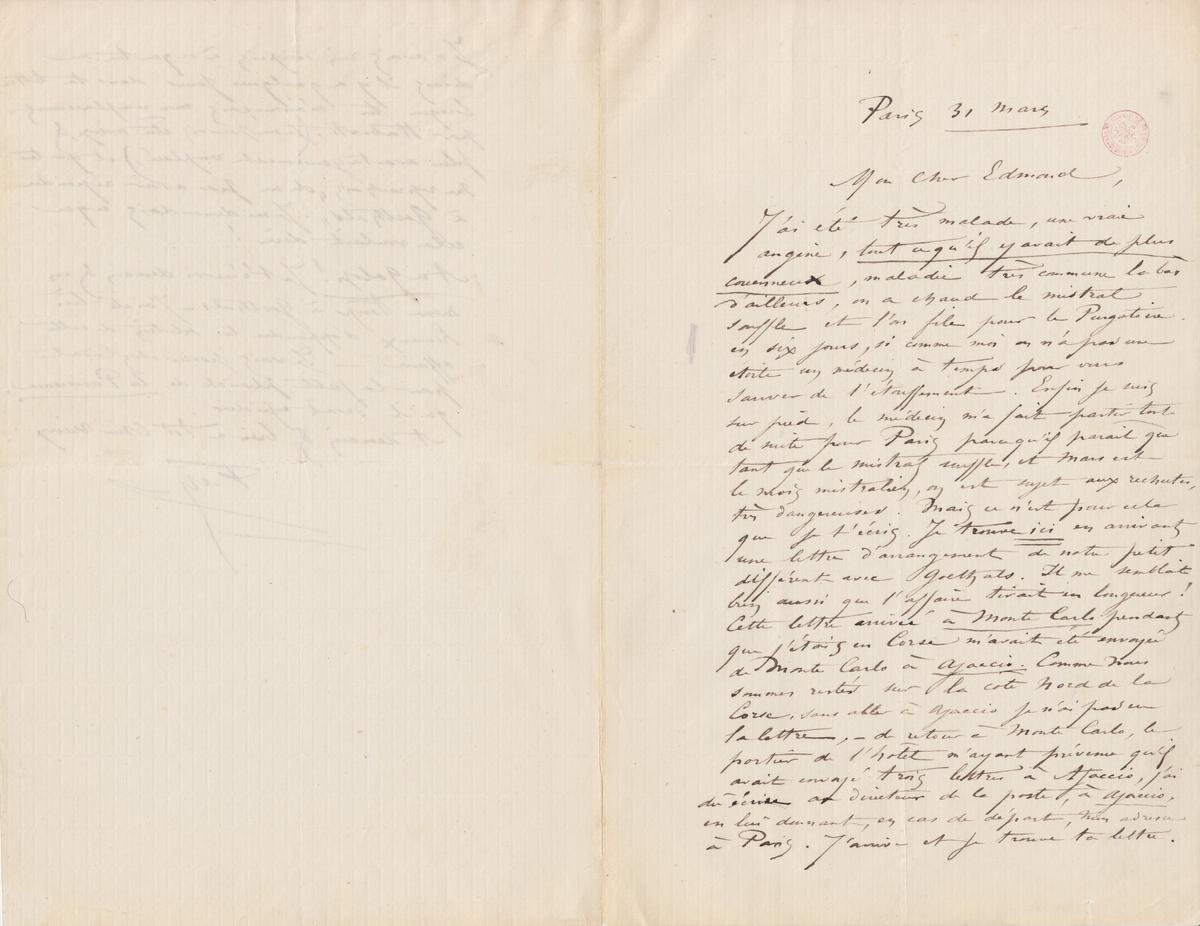 Paris 31 mars
Mon cher Edmond,
J'ai été très malade, une vraie
angine, tout ce qu'il y avait de plus
couenneux, maladie très commune la bas
d'ailleurs, on a chaud le mistral
souffle et l'on file pour le Purgatoire
en six jours, si comme moi on n'a pas une
étoile un médecin à temps pour vous
sauver de l'étouffement. Enfin je suis
sur pied, le médecin m'a fait partir tout
de suite pour Paris parcequ'il parait que
tant que le mistral souffle, et Mars est
le mois mistralien, on est sujet aux rechutes,
très dangereuses. Mais ce n'est pour cela
que je t'écris. Je trouve ici en arrivant
une lettre d'arrangement de notre petit
différent avec Goethals. Il me semblait
bien aussi que l'affaire tirait en longueur!
Cette lettre arrivée à Monte Carlo pendant
que j'étais en Corse m'avait été envoyée
de Monte Carlo à Ajaccio. Comme nous
sommes restés sur la cote Nord de la
Corse, sans aller à Ajaccio je n'ai pas eu
la lettre, – de retour à Monte Carlo, le
portier de l'hôtel m'ayant prévenu qu'il
avait envoyé trois lettres à Ajaccio, j'ai
dû écrire au directeur de la poste, à Ajaccio,
en lui donnant, en cas de départ, mon adresse
à Paris. J'arrive et je trouve ta lettre.